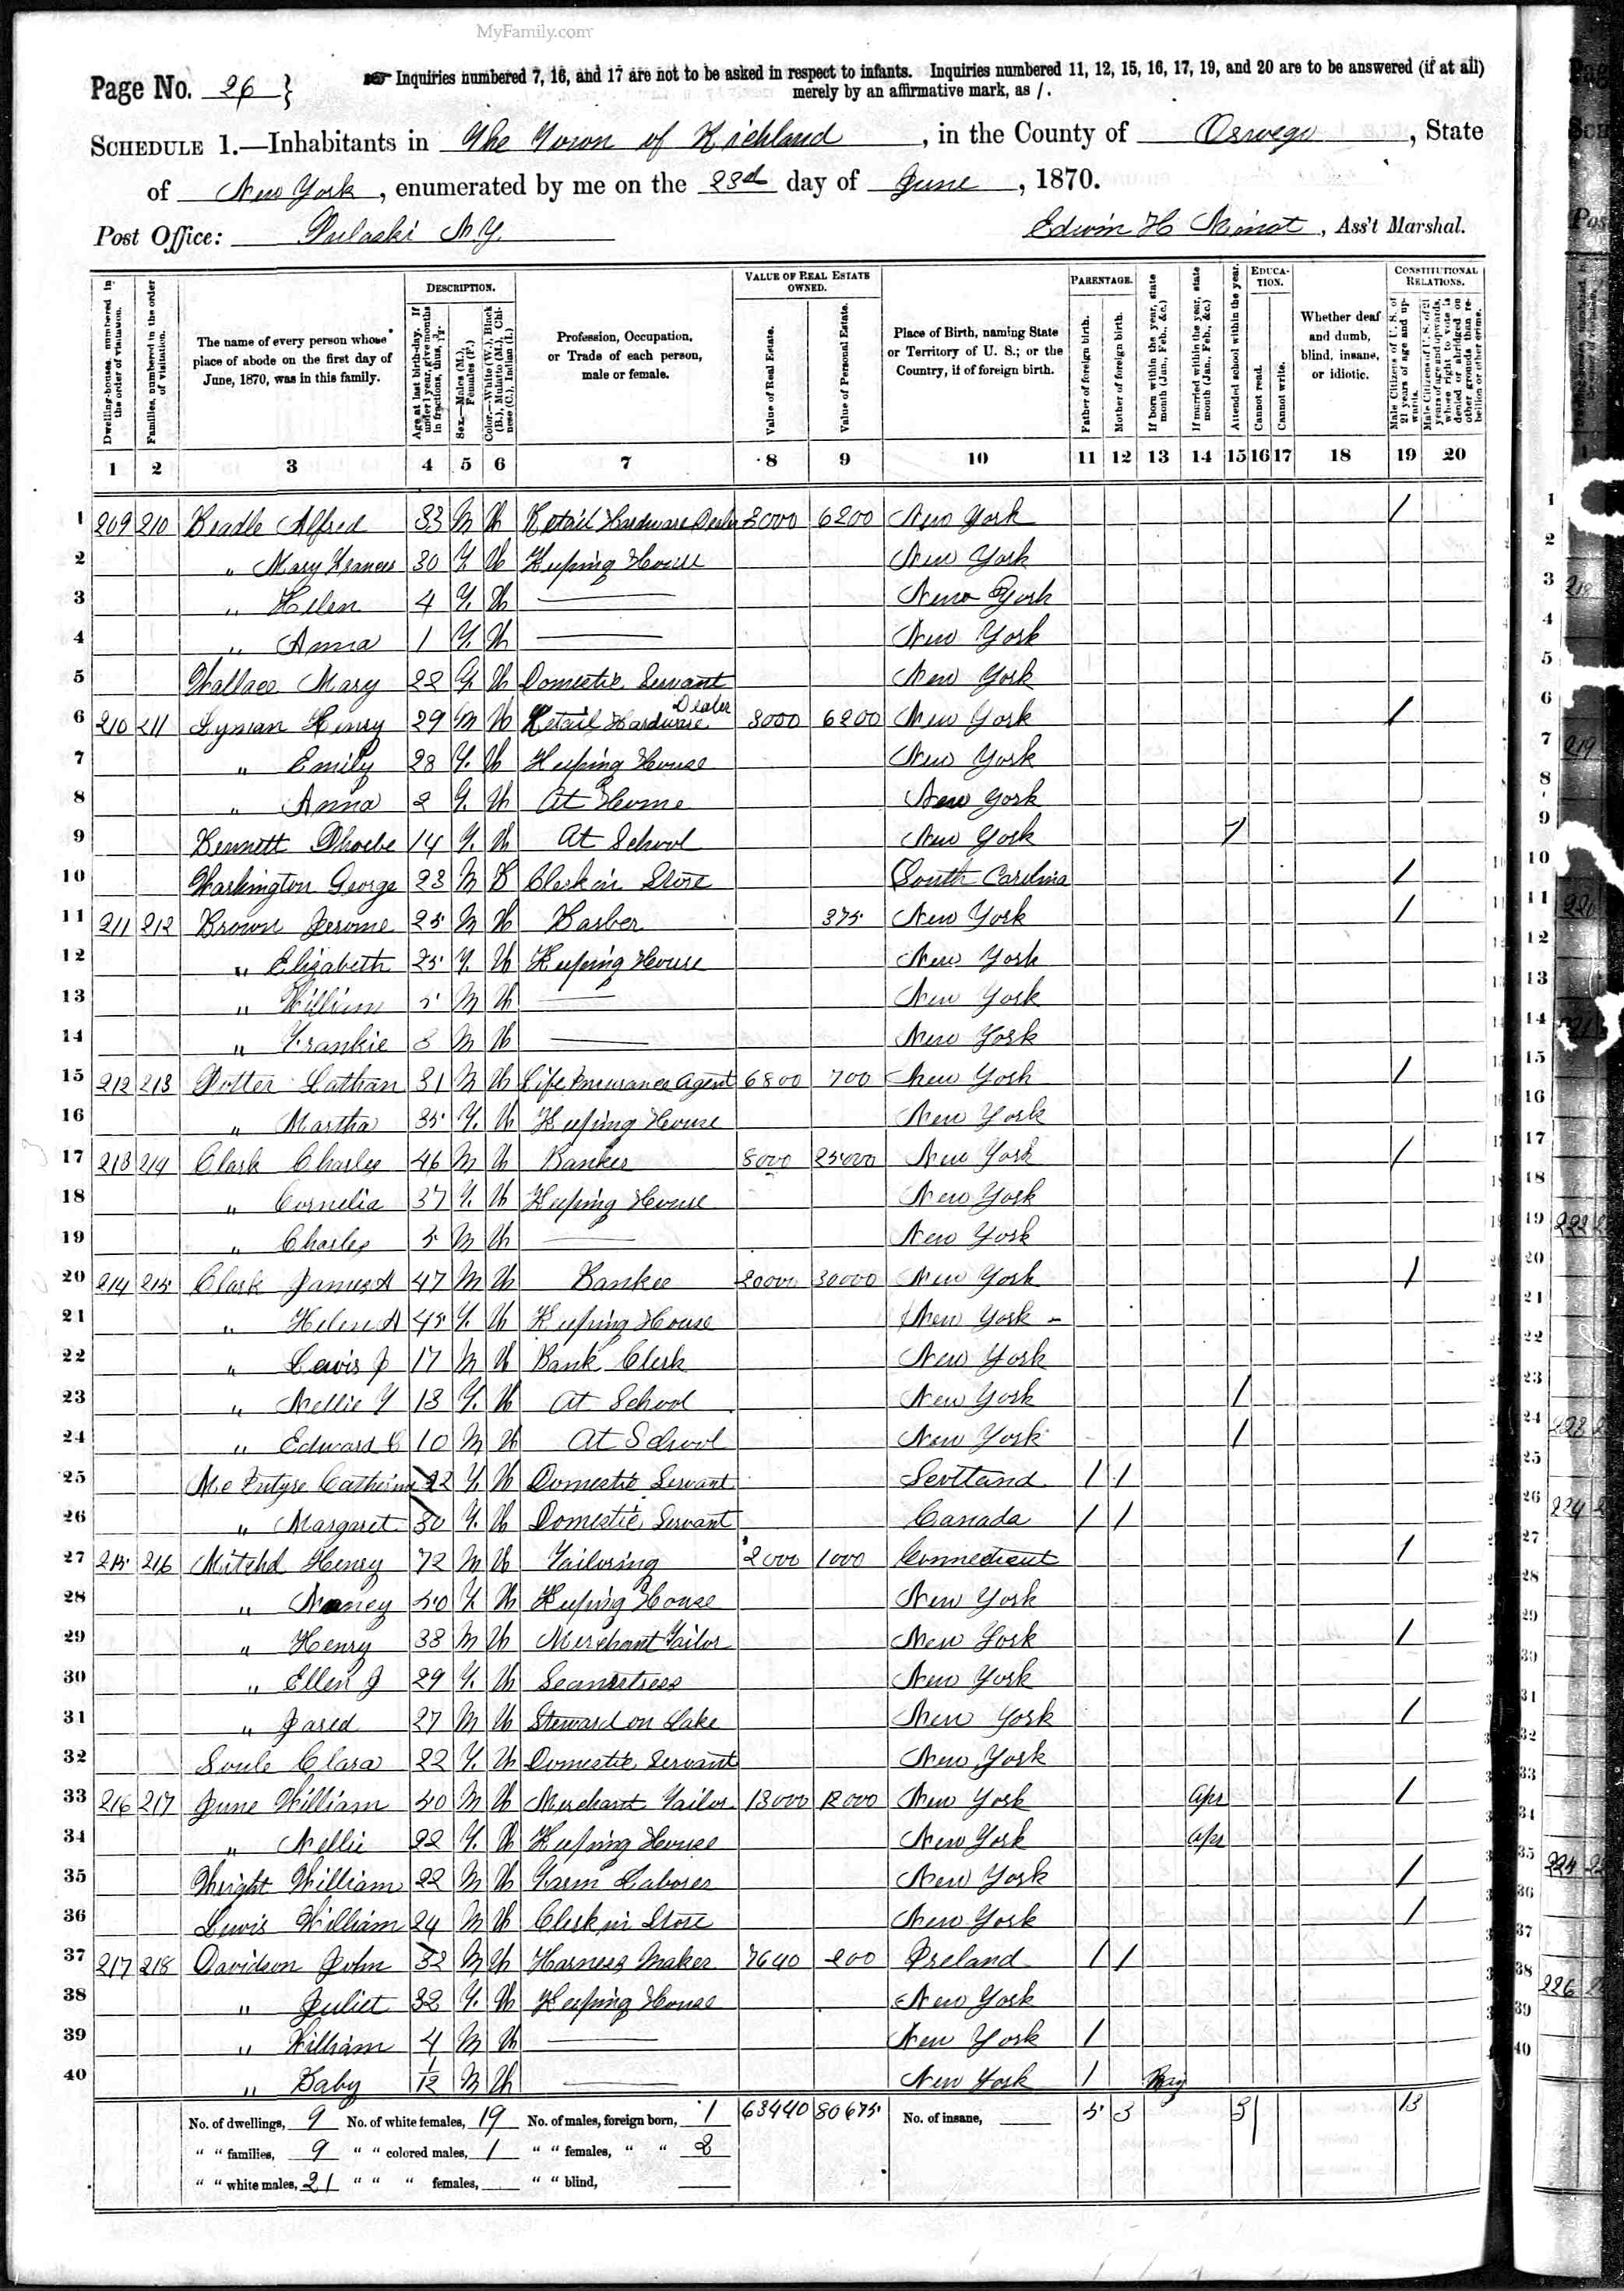 MyFamily.com
Page No. 26 }
☞ Inquiries numbered 7, 16, and 17 are not to be asked in respect to infants. Inquiries numbered 11, 12, 15, 16, 17, 19, and 20 are to be answered (if at all)
merely by an affirmative mark, as /.
SCHEDULE 1.—Inhabitants in The Town of Richland, in the County of Oswego, State
of New York, enumerated by me on the 23d day of June, 1870.
Post Office: Pulaski N.Y.
Edwin H Minot, Ass't Marshal.
Dwelling-houses, numbered in the order of visitation.
Families, numbered in the order of visitation.
The name of every person whose place of abode on the first day of June, 1870, was in this family.
DESCRIPTION.
Age at last birth-day. If under 1 year, give months in fractions, thus, 3/12
Sex.—Males (M.), Females (F.)
Color.—White (W.), Black (B.), Mulatto (M.), Chinese (C.), Indian (I.)
Profession, Occupation, or Trade of each person, male or female.
VALUE OF REAL ESTATE OWNED.
Value of Real Estate.
Value of Personal Estate.
Place of Birth, naming State or Territory of U. S.; or the Country, if of foreign birth.
PARENTAGE.
Father of foreign birth.
Mother of foreign birth.
If born within the year, state month (Jan., Feb., &c.)
If married within the year, state month (Jan., Feb., &c.)
Attended school within the year.
EDUCATION.
Cannot read.
Cannot write.
Whether deaf and dumb, blind, insane, or idiotic.
CONSTITUTIONAL RELATIONS.
Male Citizens of U. S. of 21 years of age and upwards.
Male Citizens of U. S. of 21 years of age and upwards, whose right to vote is denied or abridged on other grounds than rebellion or other crime.
1 2 3 4 5 6 7 8 9 10 11 12 13 14 15 16 17 18 19 20
1 209 210 Beadle Alfred 33 M W Retail Hardware Dealer 3000 6200 New York /
2 " Mary Frances 30 F W Keeping House New York
3 " Helen 4 F. W — New York
4 " Anna 1 F. W — New York
5 Wallace Mary 22 F W Domestic Servant New York
6 210 211 Lyman Henry 29 M W Retail Hardware Dealer 3000 6200 New York /
7 " Emily 28 F. W Keeping House New York
8 " Anna 2 F. W At Home New York
9 Bennett Phoebe 14 F. W At School New York /
10 Washington George 23 M B Clerk in Store South Carolina /
11 211 212 Brown Jerome 25 M W Barber 375 New York /
12 " Elizabeth 25 F. W Keeping House New York
13 " William 5 M W — New York
14 " Frankie 3 M W — New York
15 212 213 Potter Lathan 31 M W Life Insurance Agent 6800 700 New York /
16 " Martha 35 F. W Keeping House New York
17 213 214 Clark Charles 46 M W Banker 8000 25000 New York /
18 " Cornelia 37 F. W Keeping House New York
19 " Charles 5 M W — New York
20 214 215 Clark James A 47 M W Banker 20000 30000 New York /
21 " Helen A 45 F. W Keeping House New York
22 " Lewis J 17 M W Bank Clerk New York
23 " Nellie F 13 F. W At School New York /
24 " Edward C 10 M W At School New York /
25 Mc Entyre Catherine 22 F. W Domestic Servant Scotland / /
26 " Margaret 30 F. W Domestic Servant Canada / /
27 215 216 Mitchel Henry 72 M W Tailoring 2000 1000 Connecticut /
28 " Nancy 50 F. W Keeping House New York
29 " Henry 38 M W Merchant Tailor New York /
30 " Ellen J 29 F. W Seamstress New York
31 " Jared 27 M W Steward on Lake New York /
32 Soule Clara 22 F. W Domestic Servant New York
33 216 217 June William 50 M W Merchant Tailor 13000 12000 New York Apr /
34 " Nellie 22 F. W Keeping House New York Apr
35 Wright William 22 M W Farm Laborer New York /
36 Lewis William 24 M W Clerk in Store New York /
37 217 218 Davidson John 32 M W Harness Maker 7640 200 Ireland / /
38 " Juliet 32 F. W Keeping House New York
39 " William 4 M W — New York /
40 " Baby 1/12 M W — New York / May
No. of dwellings, 9 No. of white females, 19 No. of males, foreign born, 1 63440 80675 No. of insane, — 5 3 3 13
" " families, 9 " " colored males, 1 " " females, " " 2
" " white males, 21 " " " females, " " blind,